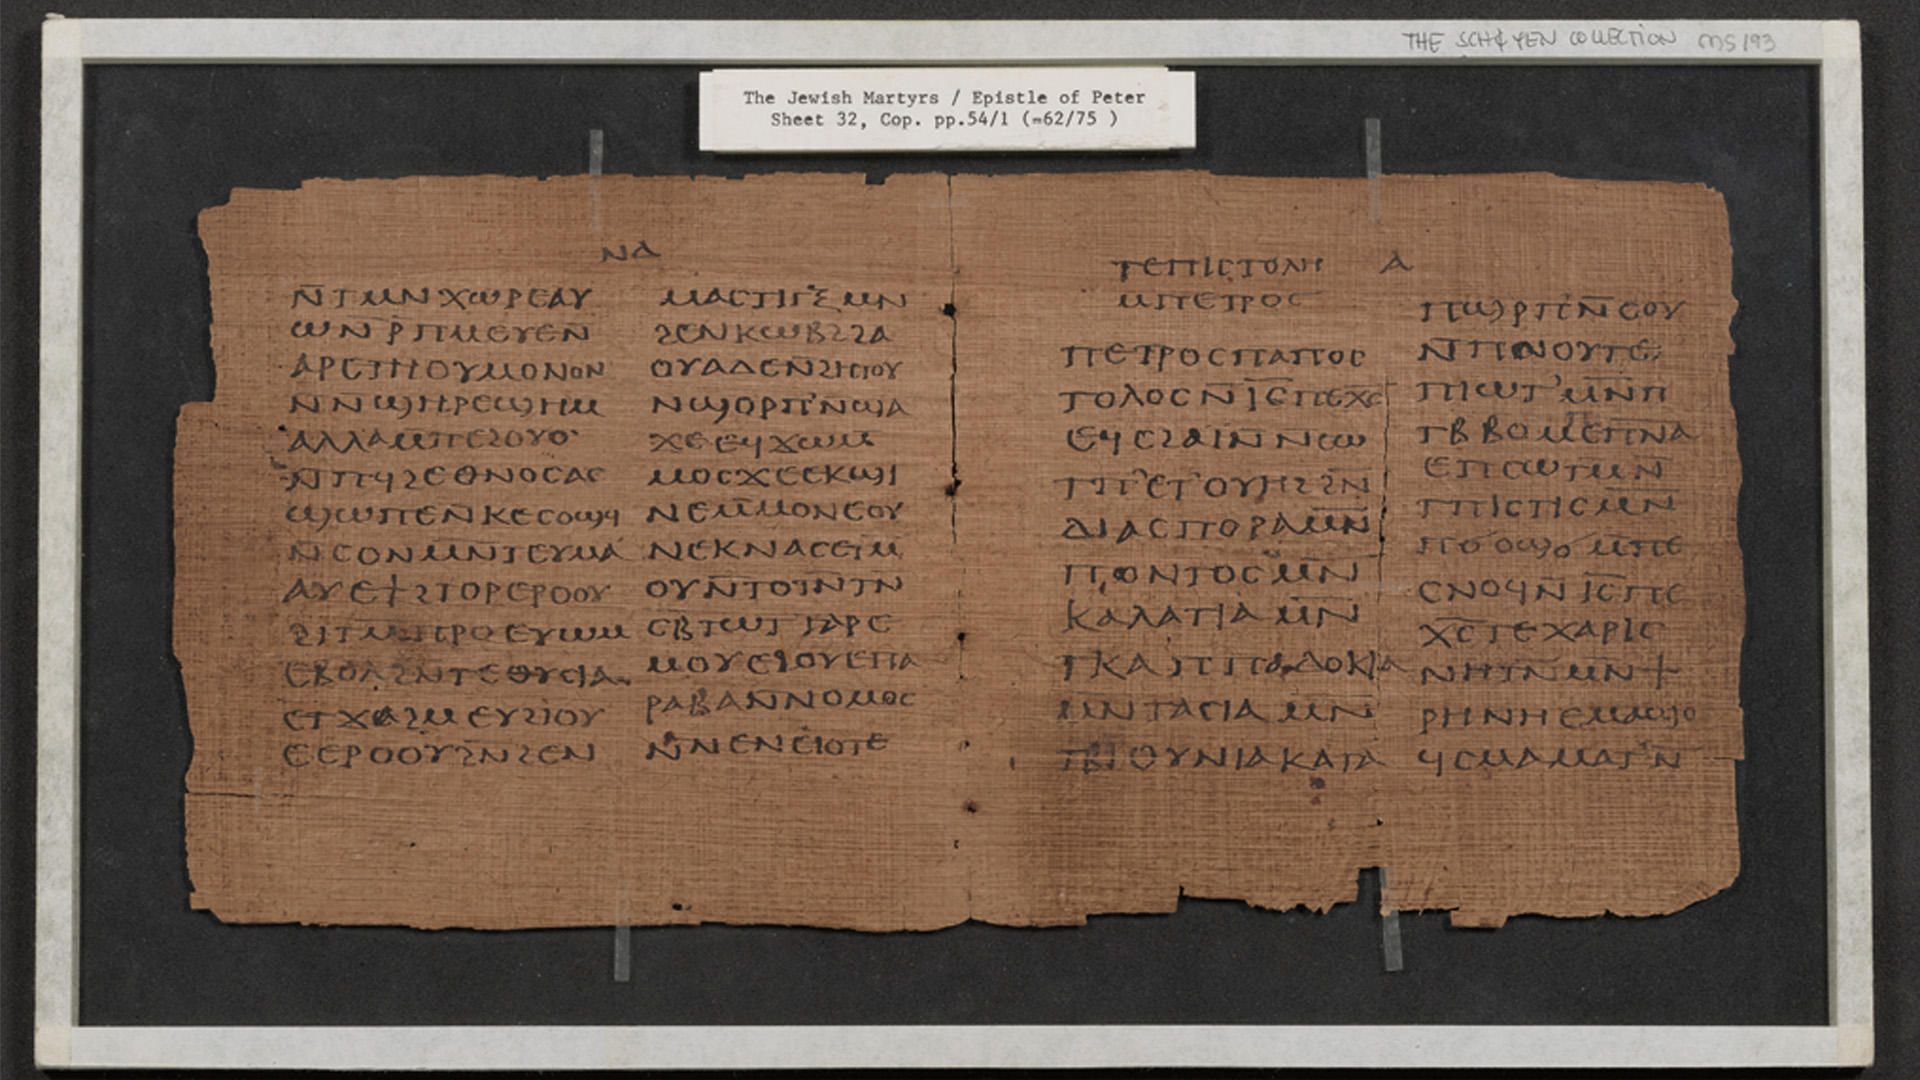 THE SCHØYEN COLLECTION MS 193
The Jewish Martyrs / Epistle of Peter
Sheet 32, Cop. pp.54/1 (=62/75 )
ⲛⲇ
ⲛ̄ⲧⲙⲛⲭⲱⲣⲉⲁⲩ
ⲱⲛ ⲣ̄ⲡⲙⲉⲩⲉⲛ̄
ⲁⲣⲉⲧⲏⲟⲩⲙⲟⲛⲟⲛ
ⲛⲛϣⲏⲣⲉϣⲏⲙ
ⲁⲗⲗⲁⲙ̄ⲡⲉϩⲟⲩⲟ
ⲛ̄ⲡϥϩⲉⲑⲛⲟⲥⲁⲥ
ϣⲱⲡⲉⲛ̄ⲕⲉⲥⲟϣϥ
ⲛ̄ⲥⲟⲛⲙⲛ̄ⲧⲉⲩⲙⲁ
ⲁⲩⲉϯϩⲧⲟⲣⲉⲣⲟⲟⲩ
ϩⲓⲧⲙ̄ⲡⲣⲟⲉⲩⲱⲙ
ⲉⲃⲟⲗϩⲛⲧⲉⲑⲩⲥⲓⲁ
ⲉⲧϫⲁϩⲙⲉⲩϩⲓⲟⲩ
ⲉⲉⲣⲟⲟⲩϩⲛ̄ϩⲉⲛ
ⲙⲁⲥⲧⲓⲅⲝ ⲙⲛ
ϩⲉⲛⲕⲱⲃϩϩⲁ
ⲟⲩⲁⲇⲉⲛ̄ϩⲏⲧⲟⲩ
ⲛϣⲟⲣⲡ̄ⲛϣⲁ
ϫⲉⲉϥϫⲱⲙ̄
ⲙⲟⲥϫⲉⲉⲕϣⲓ
ⲛⲉⲙ̄ⲙⲟⲛⲉⲟⲩ
ⲛⲉⲕⲛⲁⲥⲉⲓⲙ
ⲟⲩⲛ̄ⲧⲟⲧⲛ̄ⲧⲛ
ⲥⲃⲧⲱⲧ ⲅⲁⲣⲉ
ⲙⲟⲩⲉϩⲟⲩⲉⲡⲁ
ⲣⲁⲃⲁⲛ̄ⲛⲟⲙⲟⲥ
ⲛ̄ⲛⲉⲛⲉⲓⲟⲧⲉ
ⲧⲉⲡⲓⲥⲧⲟⲗⲏ ⲁ
ⲙ̄ⲡⲉⲧⲣⲟⲥ
ⲡⲉⲧⲣⲟⲥⲡⲁⲡⲟⲥ
ⲧⲟⲗⲟⲥⲛ̄ⲓ̄ⲥ̄ⲡⲉⲭ̄ⲥ̄
ⲉϥⲥϩⲁⲓⲛ̄ⲛⲥⲱ
ⲧⲡⲉⲧⲟⲩⲏϩϩⲛ̄
ⲇⲓⲁⲥⲡⲟⲣⲁⲙ̄ⲛ̄
ⲡⲡⲟⲛⲧⲟⲥⲙⲛ̄
ⲕⲁⲗⲁⲧⲓⲁ ⲙⲛ̄
ⲧⲕⲁⲡⲡⲁⲇⲟⲕⲓⲁ
ⲙⲛⲧⲁⲥⲓⲁ ⲙⲛ̄
ⲧⲃⲓⲑⲩⲛⲓⲁⲕⲁⲧⲁ
ⲡϣⲣ̄ⲡⲛ̄ⲥⲟⲩ
ⲛ̄ⲡⲛⲟⲩⲧⲉ
ⲡⲓⲱⲧ ⲙⲛ̄ⲡ
ⲧⲃⲃⲟⲙ̄ⲡⲉⲡ̄ⲛ̄ⲁ̄
ⲉⲡⲥⲱⲧⲙ̄ⲛ̄
ⲧⲡⲓⲥⲧⲓⲥⲙ̄ⲛ̄
ⲡϭⲟϣϭϣ ⲙ̄ⲡⲉ
ⲥⲛⲟϥⲛ̄ ⲓ̄ⲥ̄ⲡⲉ
ⲭ̄ⲥ̄ⲧⲉⲭⲁⲣⲓⲥ
ⲛⲏⲧⲛ̄ⲙⲛ̄ϯ
ⲣⲏⲛⲏ ⲉⲙⲁϣⲟ
ϥⲥⲙⲁⲙⲁⲧ̄ⲛ̄